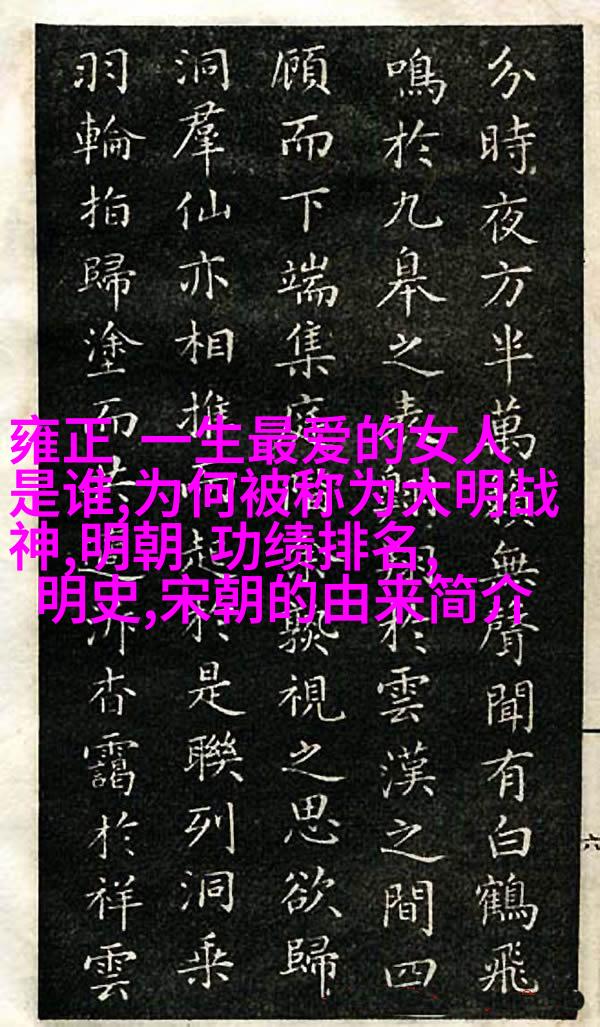 分時夜方半萬無聲聞有白鶴飛
鳴於九皋之表於雲漢之間四
顧而下端集庭視之思欲歸
洞羣仙亦相推而起於是聯列洞乘
羽輪拍歸塗而杳靄於祥雲
六
雍正 一生最爱的女人
是谁,为何被称为大明战
神,明朝 功绩排名,
明史,宋朝的由来简介